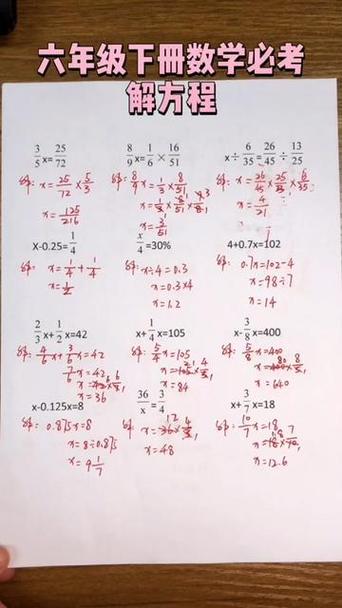 六年级下册数学必考
解方程
3/5 x=25/72
解: x=25/72×5/3
x=125/216
8/9 x=1/6×16/51
解: 8/9 x=1/3×8/51
x=1/3×8/51×9/8
x=3/51
x÷6/35=26/45÷13/25
解: x=26/45×25/13×6/35
x=4/21
x-0.25=1/4
解: x=1/4+1/4
x=1/2
x/4=30%
解: x÷4=0.3
x=0.3×4
x=1.2
4+0.7x=102
解: 0.7x=102-4
x=98÷7
x=14
2/3 x+1/2 x=42
解: 4/6 x+3/6 x=42
7/6 x=42
x=36
x+1/4 x=105
解: 5/4 x=105
x=105×4/5
x=84
x-3/8 x=400
解: 5/8 x=400
x=400×8/5
x=640
x-0.125x=8
解: 0.875x=8
x=8÷0.875
x=9 1/7
36/x=3/4
解: x=36×4/3
x=48
x+3/7 x=18
解: 10/7 x=18
x=18×7/10
x=12.6